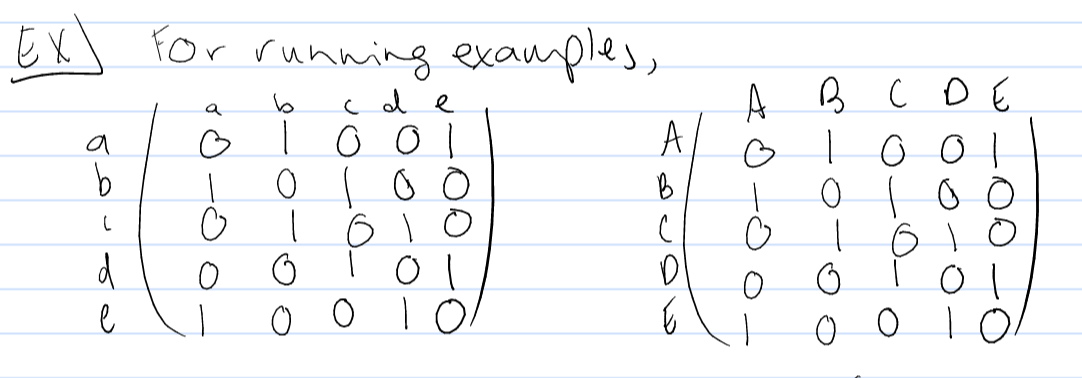 EX) For running examples,
a b c d e
a 0 1 0 0 1
b 1 0 1 0 0
c 0 1 0 1 0
d 0 0 1 0 1
e 1 0 0 1 0
A B C D E
A 0 1 0 0 1
B 1 0 1 0 0
C 0 1 0 1 0
D 0 0 1 0 1
E 1 0 0 1 0